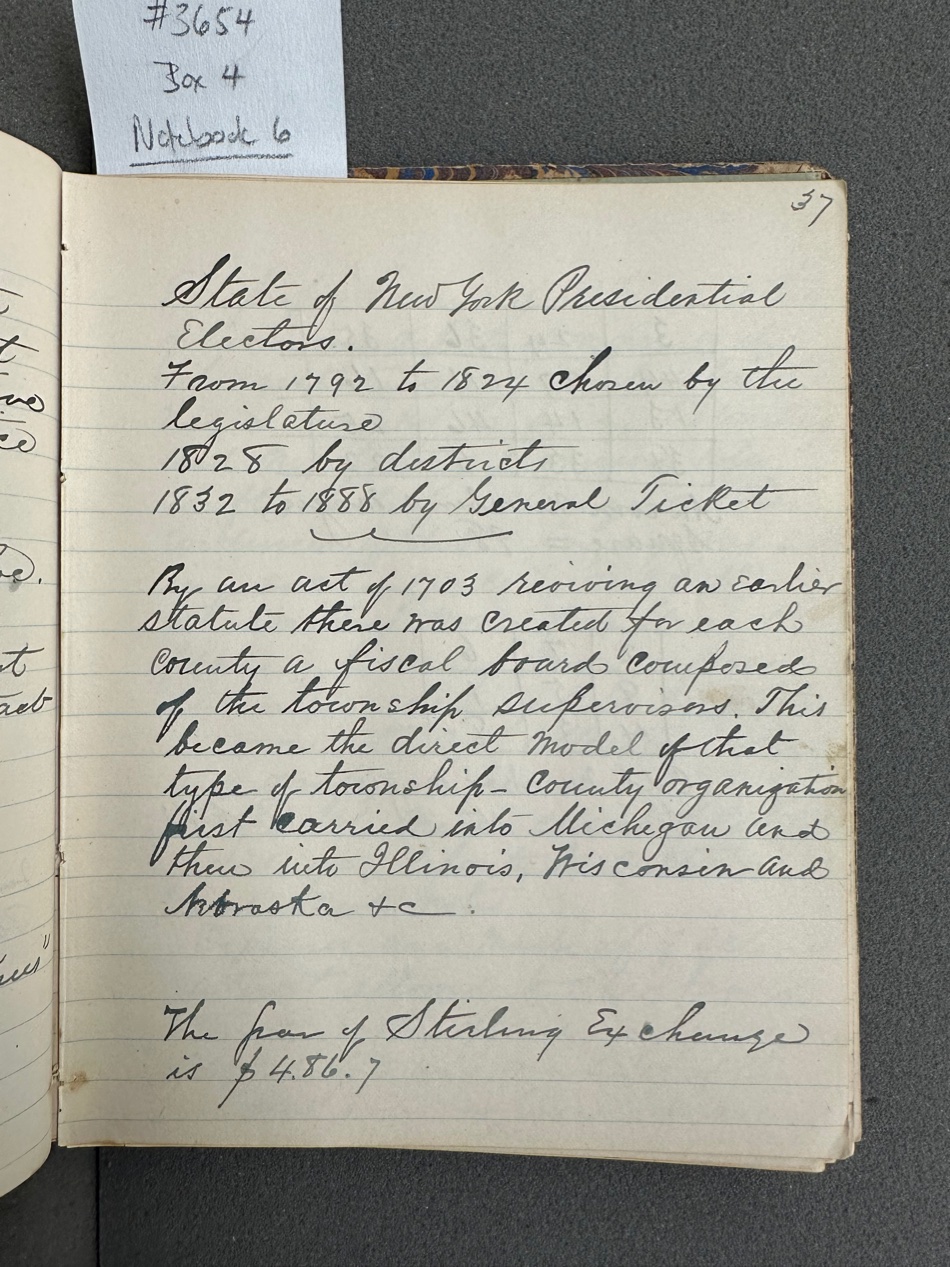 #3654
Box 4
Notebook 6
37
State of New York Presidential
Electors.
From 1792 to 1824 chosen by the
legislature
1828 by districts
1832 to 1888 by General Ticket
By an act of 1703 reviving an earlier
statute there was created for each
county a fiscal board composed
of the township supervisors. This
became the direct model of that
type of township-county organization
first carried into Michegan and
then into Illinois, Wisconsin and
Nebraska &c.
The par of Stirling Exchange
is $4.86.7